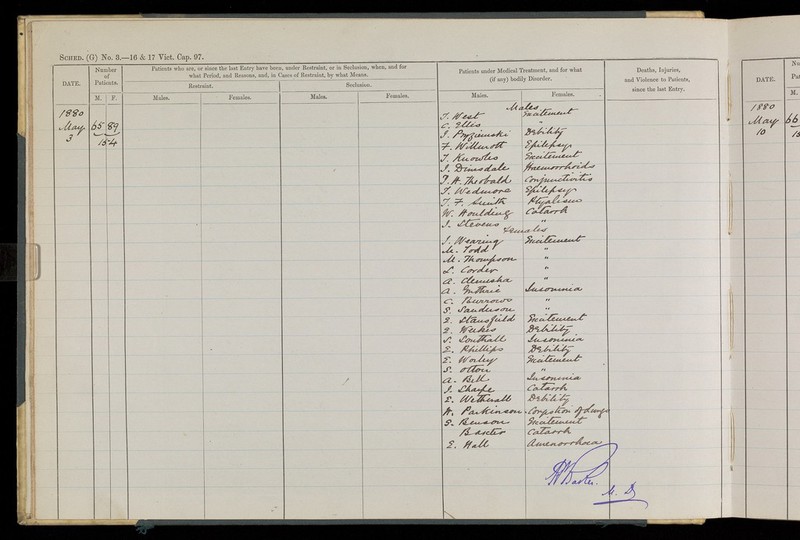 SCHED. (G) No. 3.—16 & 17 Vict. Cap. 97.
DATE.
Number of Patients.
M. F.
Patients who are, or since the last Entry have been, under Restraint, or in Seclusion, when, and for
what Period, and Reasons, and, in Cases of Restraint, by what Means.
Restraint.
Seclusion.
Males.
Females.
Males.
Females.
Patients under Medical Treatment, and for what
(if any) bodily Disorder.
Males.
Females.
Deaths, Injuries,
and Violence to Patients,
since the last Entry.
1880
May 65 89
3 154
Males
J. West Excitement
C. Elles "
J. Debility
F. Willmott Epilepsy
J. Knowles Excitement
J. Dinsdale Haemorrhoids
J. H. Theobald Conjunctivitis
J. Wedmore Epilepsy
J. F. Smith Ptyalism
W. Houlding Catarrh
J. Stevens "
Females
J. Wearing Excitement
M. Todd "
M. Thompson "
L. Corder "
A. Clemesha "
A. Guthrie Insomnia
C. Burrows "
S. Sanderson "
E. Stansfield Excitement
E. Weekes Debility
S. Southall Insomnia
E. Phillips Debility
E. Worley Excitement
S. Otton "
A. Bell Insomnia
J. Sharpe Catarrh
E. Wetherall Debility
H. Parkinson Congestion of Lungs
S. Benson Excitement
Baxter Catarrh
E. Hall Amenorrhoea
Baker.
M. D
DATE.
M.
1880
May 66
10